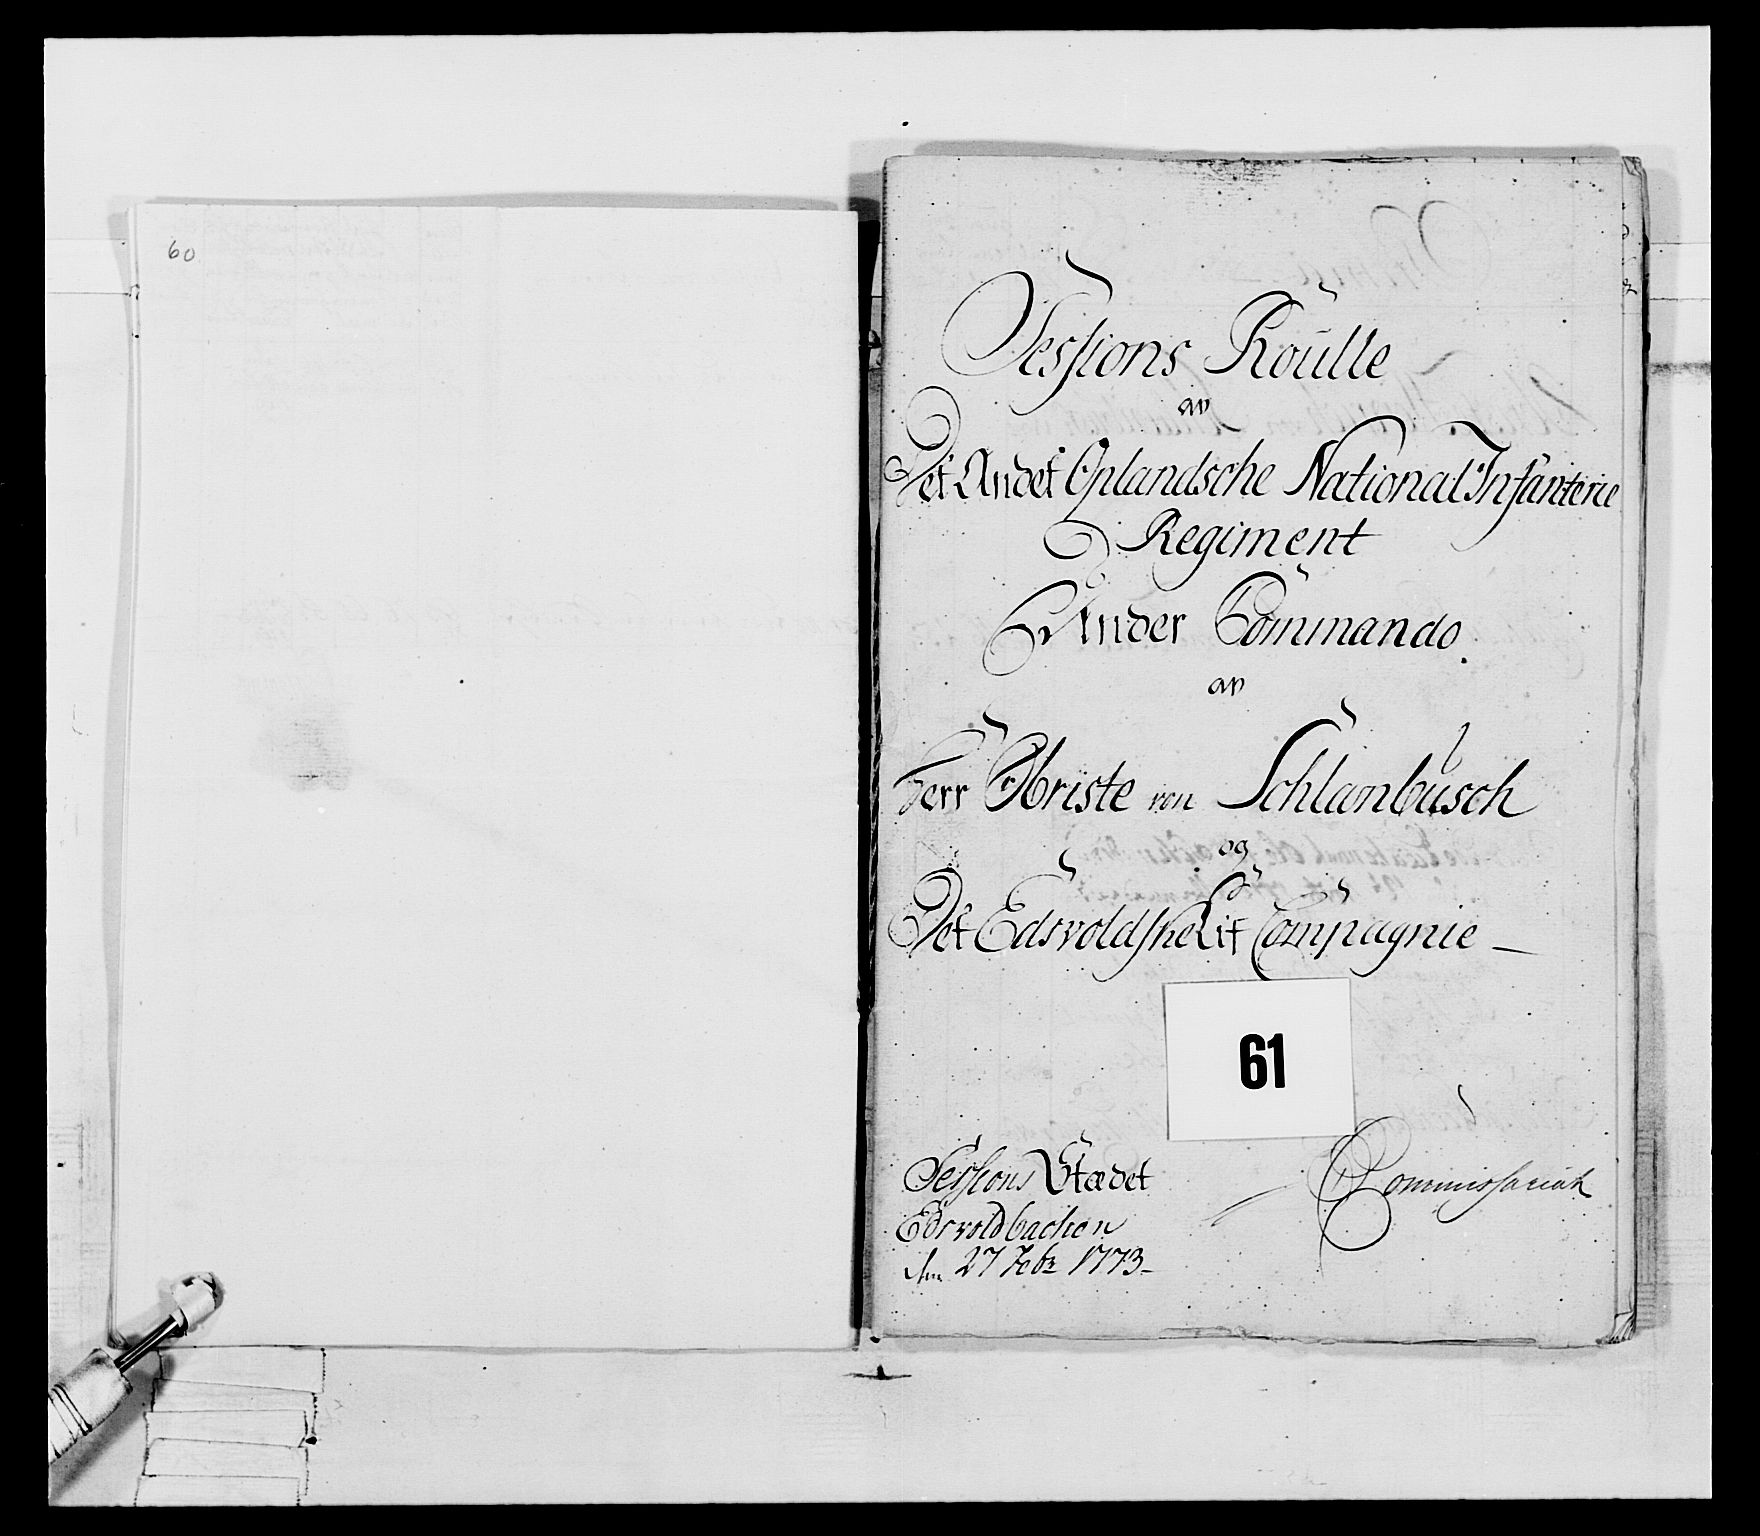 60
Sessions Roulle
av
Det Andet Oplandsche National Infanterie
Regiment
Under Commando
av
Herr Obriste von Schlanbusch
og
Det Edsvoldske Lif Compagnie
61
Sessions Stædet
Edsvoldbachen
den 27 Febr 1773
Commissariat